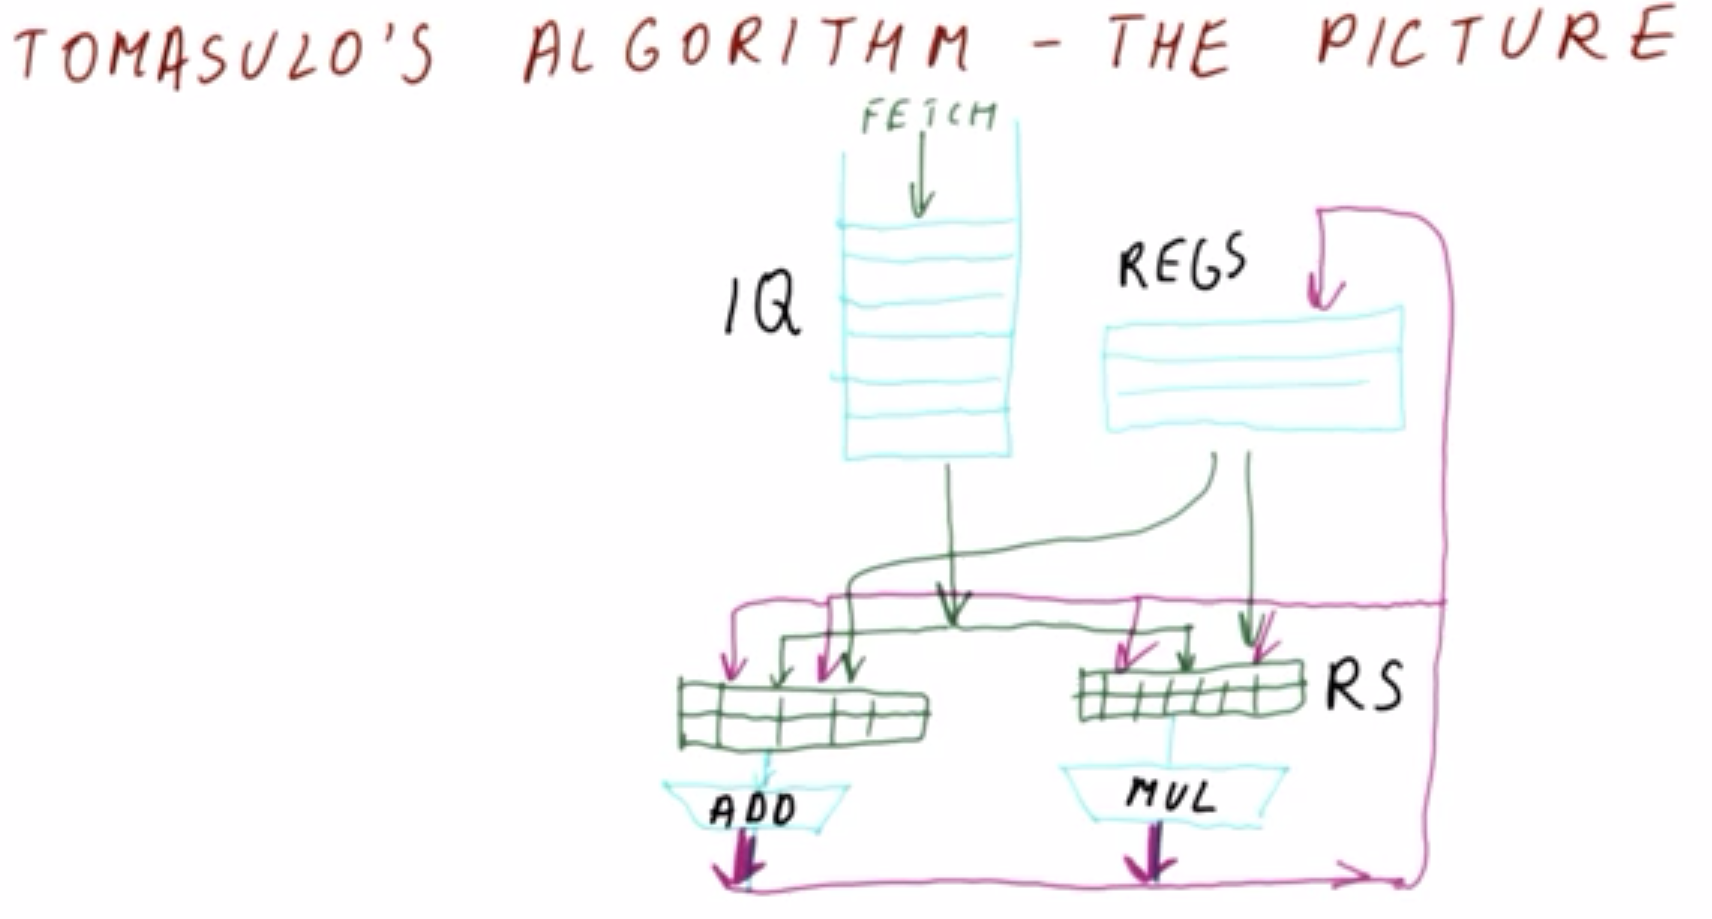 TOMASULO'S ALGORITHM - THE PICTURE
FETCH
REGS
IQ
RS
ADD
MUL